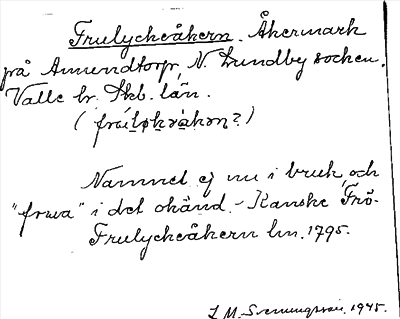 Frulyckeåkern. Åkermark
på Annendtorp, N. Lundby socken.
Valle hr. Skb. län.
(                    ?)
Namnet ej nu i bruk, och
"fruva" i det okänd. - Kanske Frö-
Frulyckeåkern lm. 1795.
L. M. Svenungsson. 1945.